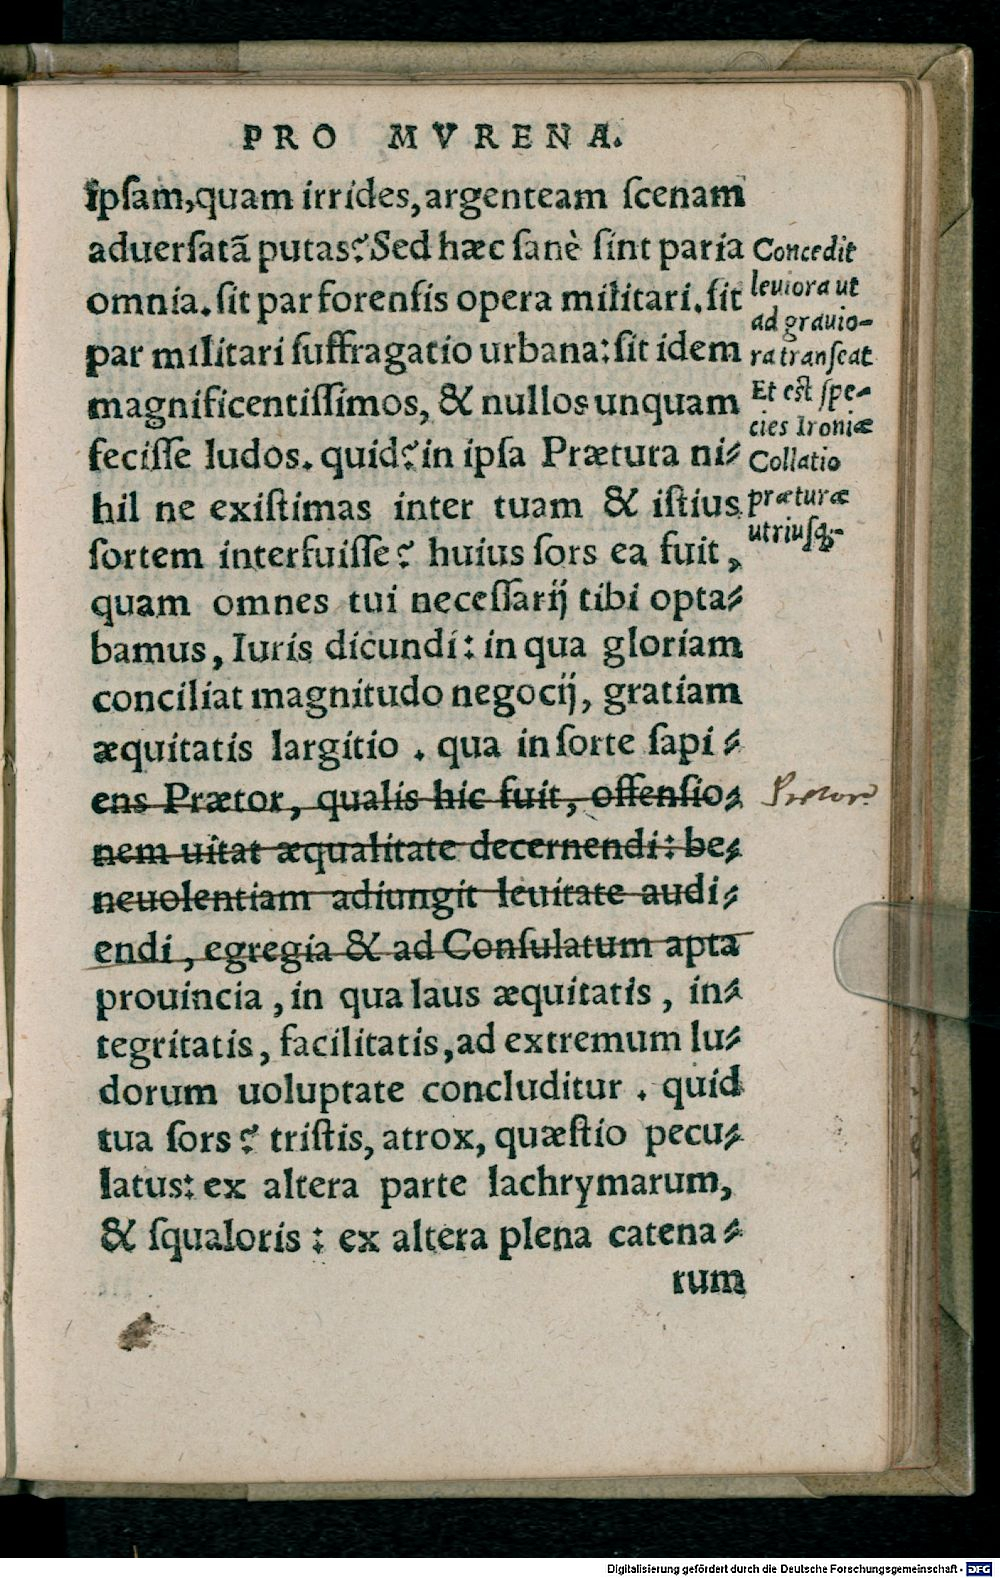 PRO MVRENA.
ipsam, quam irrides, argenteam scenam
aduersatã putas? Sed hæc sanè sint paria
omnia. sit par forensis opera militari. sit
par militari suffragatio urbana: sit idem
magnificentissimos, & nullos unquam
fecisse ludos. quid? in ipsa Prætura ni-
hil ne existimas inter tuam & istius
sortem interfuisse? huius sors ea fuit,
quam omnes tui necessarij tibi opta-
bamus, Iuris dicundi: in qua gloriam
conciliat magnitudo negocij, gratiam
æquitatis largitio. qua in sorte sapi-
ens Prætor, qualis hic fuit, offensio-
nem uitat æqualitate decernendi: be-
neuolentiam adiungit leuitate audi-
endi, egregia & ad Consulatum apta
prouincia, in qua laus æquitatis, in-
tegritatis, facilitatis, ad extremum lu-
dorum uoluptate concluditur. quid
tua sors? tristis, atrox, quæstio pecu-
latus: ex altera parte lachrymarum,
& squaloris: ex altera plena catena-
rum
Concedit
leuiora ut
ad grauio-
ra transeat
Et est spe-
cies Ironiæ
Collatio
præturæ
utriusq;
Digitalisierung gefördert durch die Deutsche Forschungsgemeinschaft - DFG